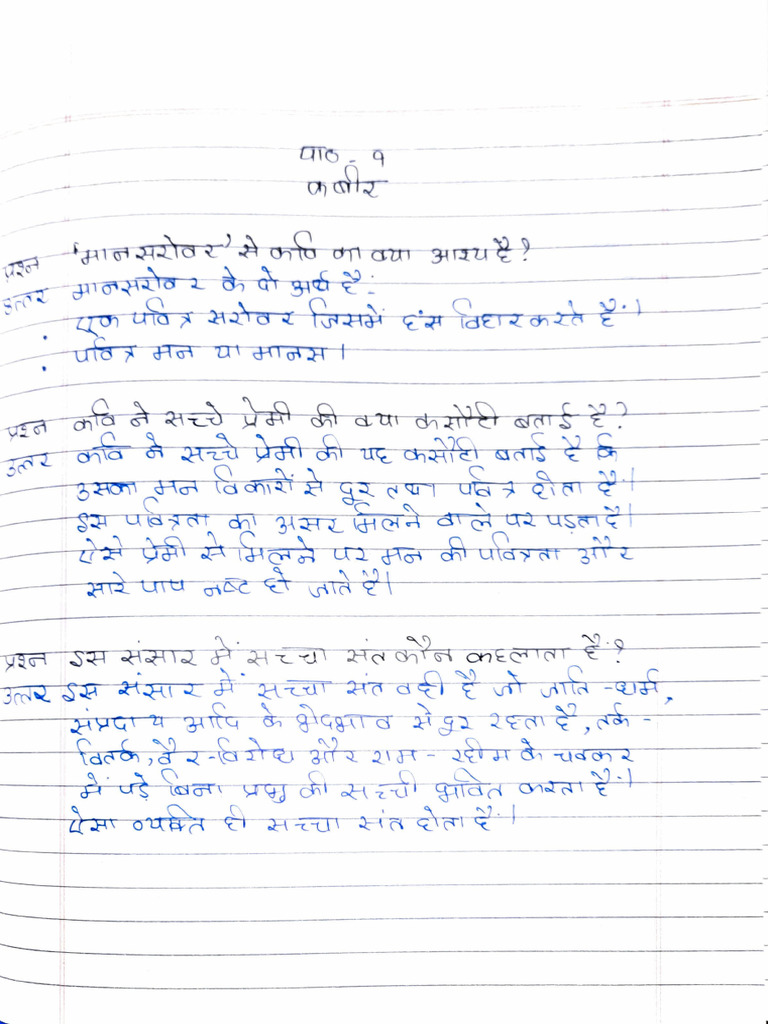 पाठ - १
कबीर
प्रश्न 'मानसरोवर' से कवि का क्या आश्य है?
उत्तर मानसरोवर के दो अर्थ हैं:
• एक पवित्र सरोवर जिसमें हंस विहार करते हैं।
• पवित्र मन या मानस।
प्रश्न कवि ने सच्चे प्रेमी की क्या कसौटी बताई है?
उत्तर कवि ने सच्चे प्रेमी की यह कसौटी बताई है कि
उसका मन विकारों से दूर तथा पवित्र होता है।
इस पवित्रता का असर मिलने वाले पर पड़ता है।
ऐसे प्रेमी से मिलने पर मन की पवित्रता और
सारे पाप नष्ट हो जाते है।
प्रश्न इस संसार में सच्चा संत कौन कहलाता है?
उत्तर इस संसार में सच्चा संत वही है जो जाति-धर्म,
संप्रदाय आदि के भेदभाव से दूर रहता है, तर्क-
वितर्क, वैर-विरोध और राम-रहीम के चक्कर
में पड़े बिना प्रभु की सच्ची भक्ति करता है।
ऐसा व्यक्ति ही सच्चा संत होता है।